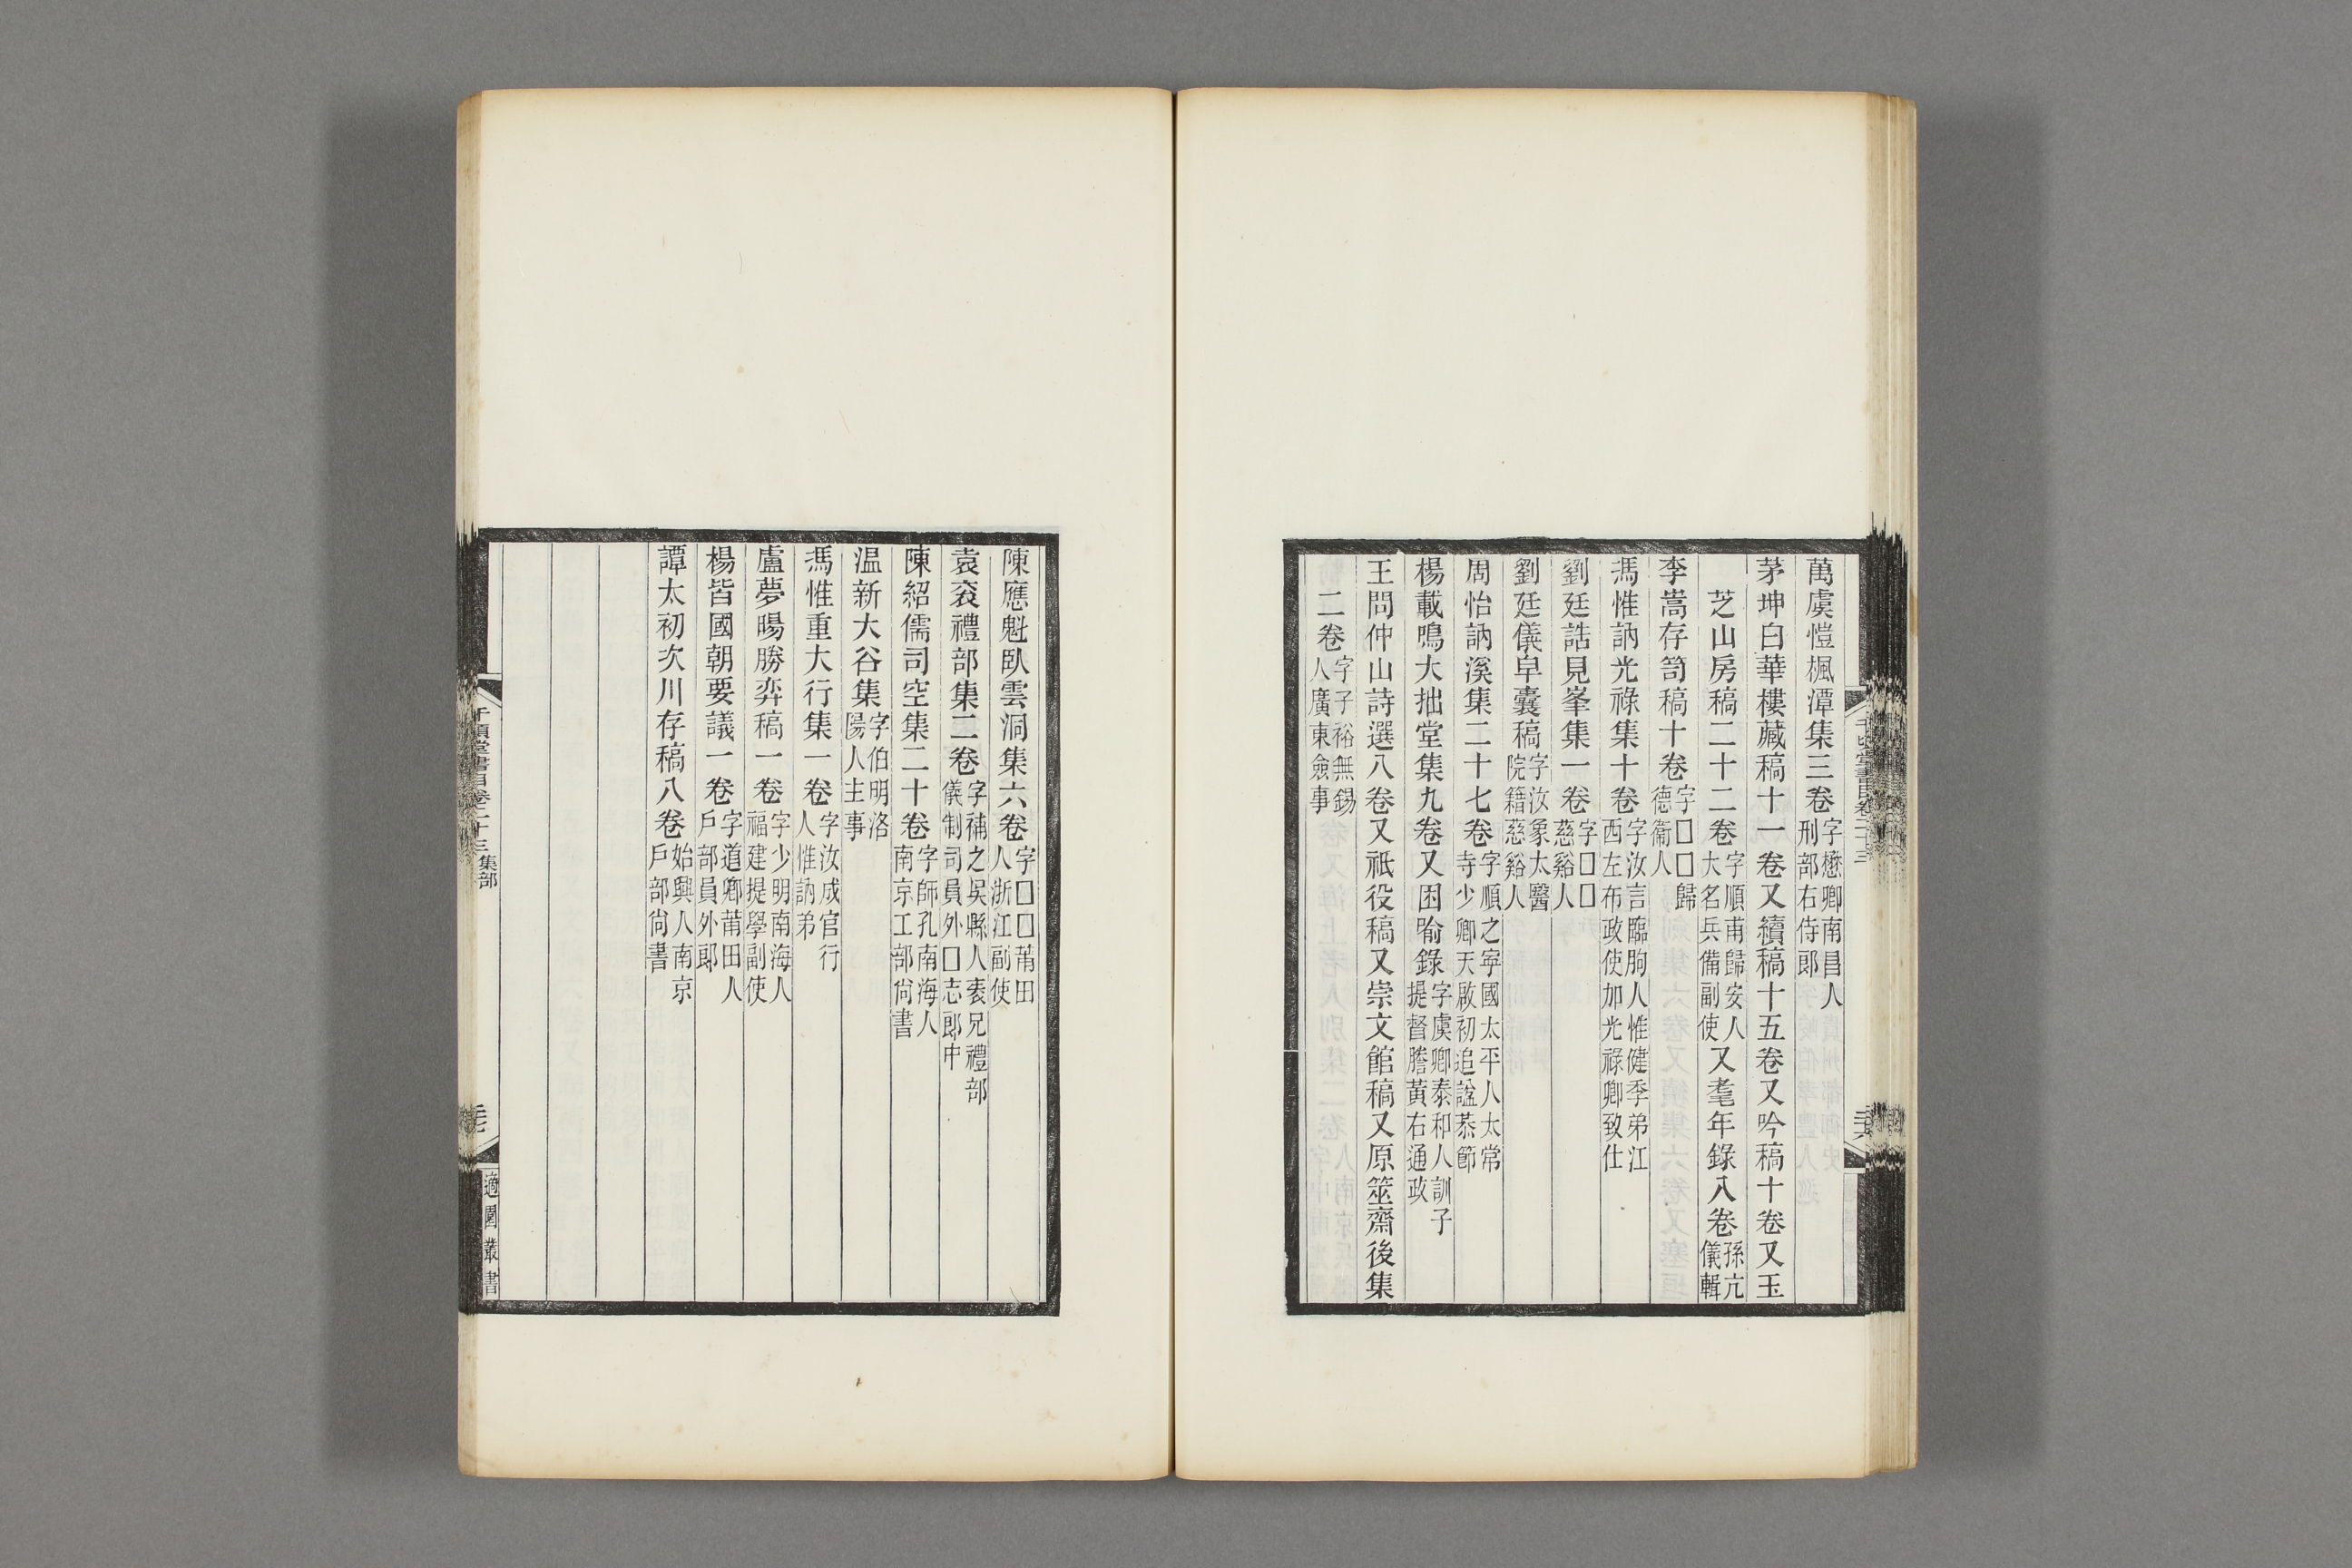 萬虞愷楓潭集三卷字懋卿南昌人刑部右侍郎
茅坤白華樓藏稿十一卷又續稿十五卷又吟稿十卷又玉
芝山房稿二十二卷字順甫歸安人大名兵備副使又耄年錄八卷孫亢儀輯
李嵩存笥稿十卷字□□歸德衞人
馮惟訥光祿集十卷字汝言臨朐人惟健季弟江西左布政使加光祿卿致仕
劉廷誥見峯集一卷字□□慈谿人
劉廷儀皁囊稿字汝象太醫院籍慈谿人
周怡訥溪集二十七卷字順之寜國太平人太常寺少卿天啟初追諡恭節
楊載鳴大拙堂集九卷又困喻錄字虞卿泰和人訓子提督謄黃右通政
王問仲山詩選八卷又祇役稿又崇文館稿又原筮齋後集
二卷字子裕無錫人廣東僉事
千頃堂書目卷二十三
陳應魁臥雲洞集六卷字□□莆田人浙江副使
袁袞禮部集二卷字補之吳縣人袠兄禮部儀制司員外□志郎中
陳紹儒司空集二十卷字師孔南海人南京工部尙書
温新大谷集字伯明洛陽人主事
馮惟重大行集一卷字汝成官行人惟訥弟
盧夢暘勝弈稿一卷字少明南海人福建提學副使
楊皆國朝要議一卷字道卿莆田人戶部員外郎
譚太初次川存稿八卷始興人南京戶部尙書
千頃堂書目卷二十三集部
適園叢書